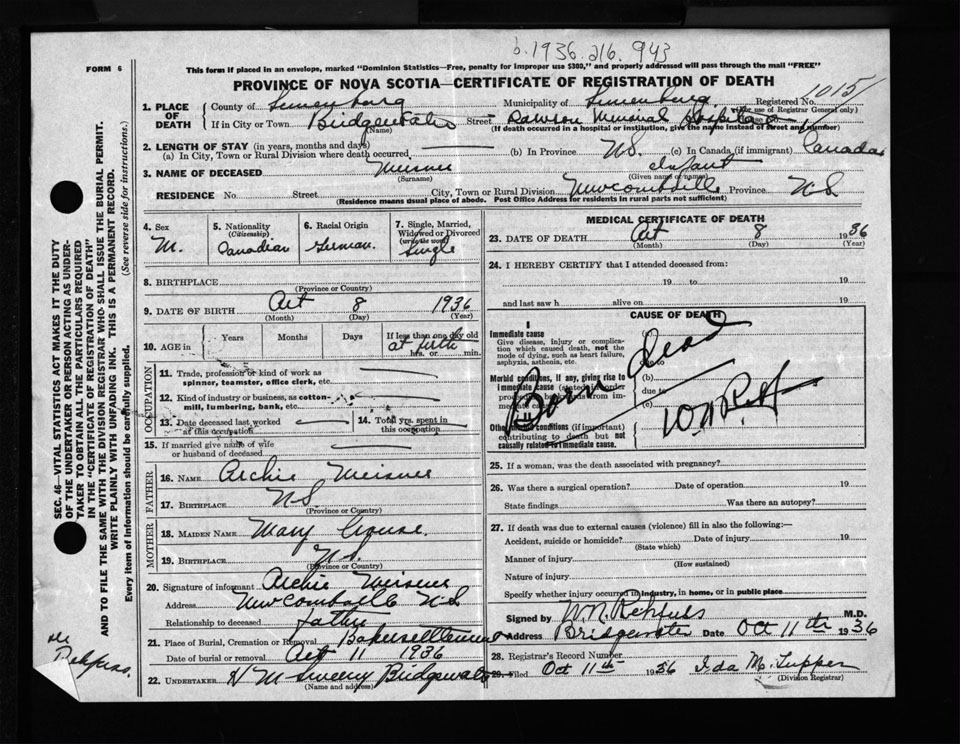 b.1936.216.943
FORM 6
This form if placed in an envelope, marked "Dominion Statistics—Free, penalty for improper use $300," and properly addressed will pass through the mail "FREE"
PROVINCE OF NOVA SCOTIA—CERTIFICATE OF REGISTRATION OF DEATH
1. PLACE OF DEATH
County of Lunenburg Municipality of Lunenburg Registered No. 1015
(For use of Registrar General only)
If in City or Town Bridgewater Street Dawson Memorial Hospital
(Name) (If death occurred in a hospital or institution, give the name instead of street and number)
2. LENGTH OF STAY (in years, months and days)
(a) In City, Town or Rural Division where death occurred (b) In Province N.S. (c) In Canada (if immigrant) Canada
3. NAME OF DECEASED Meisner infant
(Surname) (Given name or names)
RESIDENCE No. Street City, Town or Rural Division Newcombville Province N.S
(Residence means usual place of abode. Post Office Address for residents in rural parts not sufficient)
4. Sex
M.
5. Nationality
(Citizenship)
Canadian
6. Racial Origin
German.
7. Single, Married,
Widowed or Divorced
(write the word)
Single
8. BIRTHPLACE
(Province or Country)
9. DATE OF BIRTH Oct 8 1936
(Month) (Day) (Year)
10. AGE in
Years Months Days If less than one day old
at birth
hrs. or min.
OCCUPATION
11. Trade, profession or kind of work as
spinner, teamster, office clerk, etc.
12. Kind of industry or business, as cotton-
mill, lumbering, bank, etc.
13. Date deceased last worked
at this occupation
14. Total yrs. spent in
this occupation
15. If married give name of wife
or husband of deceased
FATHER
16. NAME Archie Meisner
17. BIRTHPLACE N.S.
(Province or Country)
MOTHER
18. MAIDEN NAME Mary Crouse.
19. BIRTHPLACE N.S.
(Province or Country)
20. Signature of informant Archie Meisner
Address Newcombville N.S
Relationship to deceased father
21. Place of Burial, Cremation or Removal Bakersettlement
Date of burial or removal Oct 11 1936
22. UNDERTAKER H M Sweeny Bridgewater
(Name and address)
MEDICAL CERTIFICATE OF DEATH
23. DATE OF DEATH Oct 8 1936
(Month) (Day) (Year)
24. I HEREBY CERTIFY that I attended deceased from:
19 to 19
and last saw h alive on 19
CAUSE OF DEATH
I
Immediate cause
Give disease, injury or complication which caused death, not the mode of dying, such as heart failure, asphyxia, asthenia, etc.
(a)
due to
Morbid conditions, if any, giving rise to immediate cause (stated in order
(b)
due to
(c)
Born dead
W.N.R.
II
Other conditions (if important)
contributing to death but not
causally related to immediate cause.
25. If a woman, was the death associated with pregnancy?
26. Was there a surgical operation? Date of operation 19
State findings Was there an autopsy?
27. If death was due to external causes (violence) fill in also the following:—
Accident, suicide or homicide? Date of injury 19
(State which)
Manner of injury
(How sustained)
Nature of injury
Specify whether injury occurred in industry, in home, or in public place
Signed by W.N. Rehfuss M.D.
Address Bridgewater Date Oct 11th 1936
28. Registrar's Record Number
29. Filed Oct 11th 1936 Ida M. Tupper
(Division Registrar)
SEC. 46—VITAL STATISTICS ACT MAKES IT THE DUTY
OF THE UNDERTAKER OR PERSON ACTING AS UNDER-
TAKER TO OBTAIN ALL THE PARTICULARS REQUIRED
IN THE "CERTIFICATE OF REGISTRATION OF DEATH"
AND TO FILE THE SAME WITH THE DIVISION REGISTRAR WHO SHALL ISSUE THE BURIAL PERMIT.
WRITE PLAINLY WITH UNFADING INK. THIS IS A PERMANENT RECORD.
Every item of information should be carefully supplied. (See reverse side for instructions.)